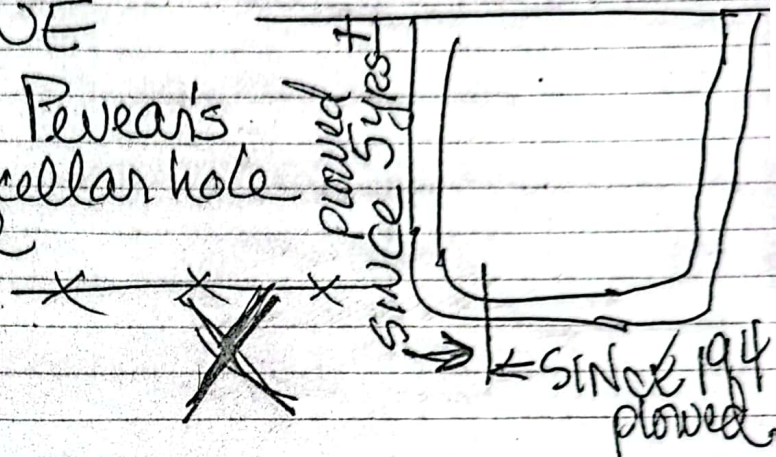 Pevear's
cellar hole
plowed
SINCE 5 yrs +
SINCE 194
plowed.